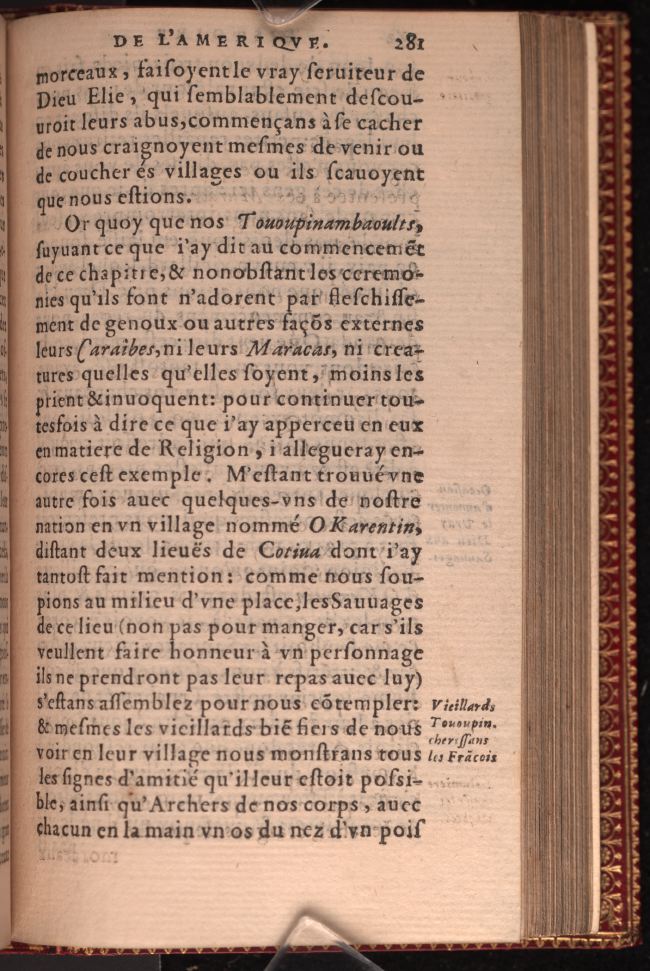 DE L'AMERIQVE. 281
morceaux, faiſoyent le vray ſeruiteur de
Dieu Elie, qui ſemblablement deſcou-
uroit leurs abus, commençans à ſe cacher
de nous craignoyent meſmes de venir ou
de coucher és villages ou ils ſcauoyent
que nous eſtions.
Or quoy que nos Tououpinambaoults,
ſuyuant ce que i'ay dit au commencemẽt
de ce chapitre, & nonobſtant les ceremo-
nies qu'ils font n'adorent par fleſchiſſe-
ment de genoux ou autres façõs externes
leurs Caraibes, ni leurs Maracas, ni crea-
tures quelles qu'elles ſoyent, moins les
prient & inuoquent: pour continuer tou-
tesfois à dire ce que i'ay apperceu en eux
en matiere de Religion, i'allegueray en-
cores ceſt exemple. M'eſtant trouué vne
autre fois auec quelques-vns de noſtre
nation en vn village nommé O Karentin,
diſtant deux lieuës de Cotiua dont i'ay
tantoſt fait mention: comme nous ſou-
pions au milieu d'vne place, les Sauuages
de ce lieu (non pas pour manger, car s'ils
veullent faire honneur à vn perſonnage
ils ne prendront pas leur repas auec luy)
s'eſtans aſſemblez pour nous cõtempler:
& meſmes les vieillards biẽ fiers de nous
voir en leur village nous monſtrans tous
les ſignes d'amitié qu'il leur eſtoit poſsi-
ble, ainſi qu'Archers de nos corps, auec
chacun en la main vn os du nez d'vn poiſ
Vieillards
Tououpin.
cheriſſans
les Frãcois